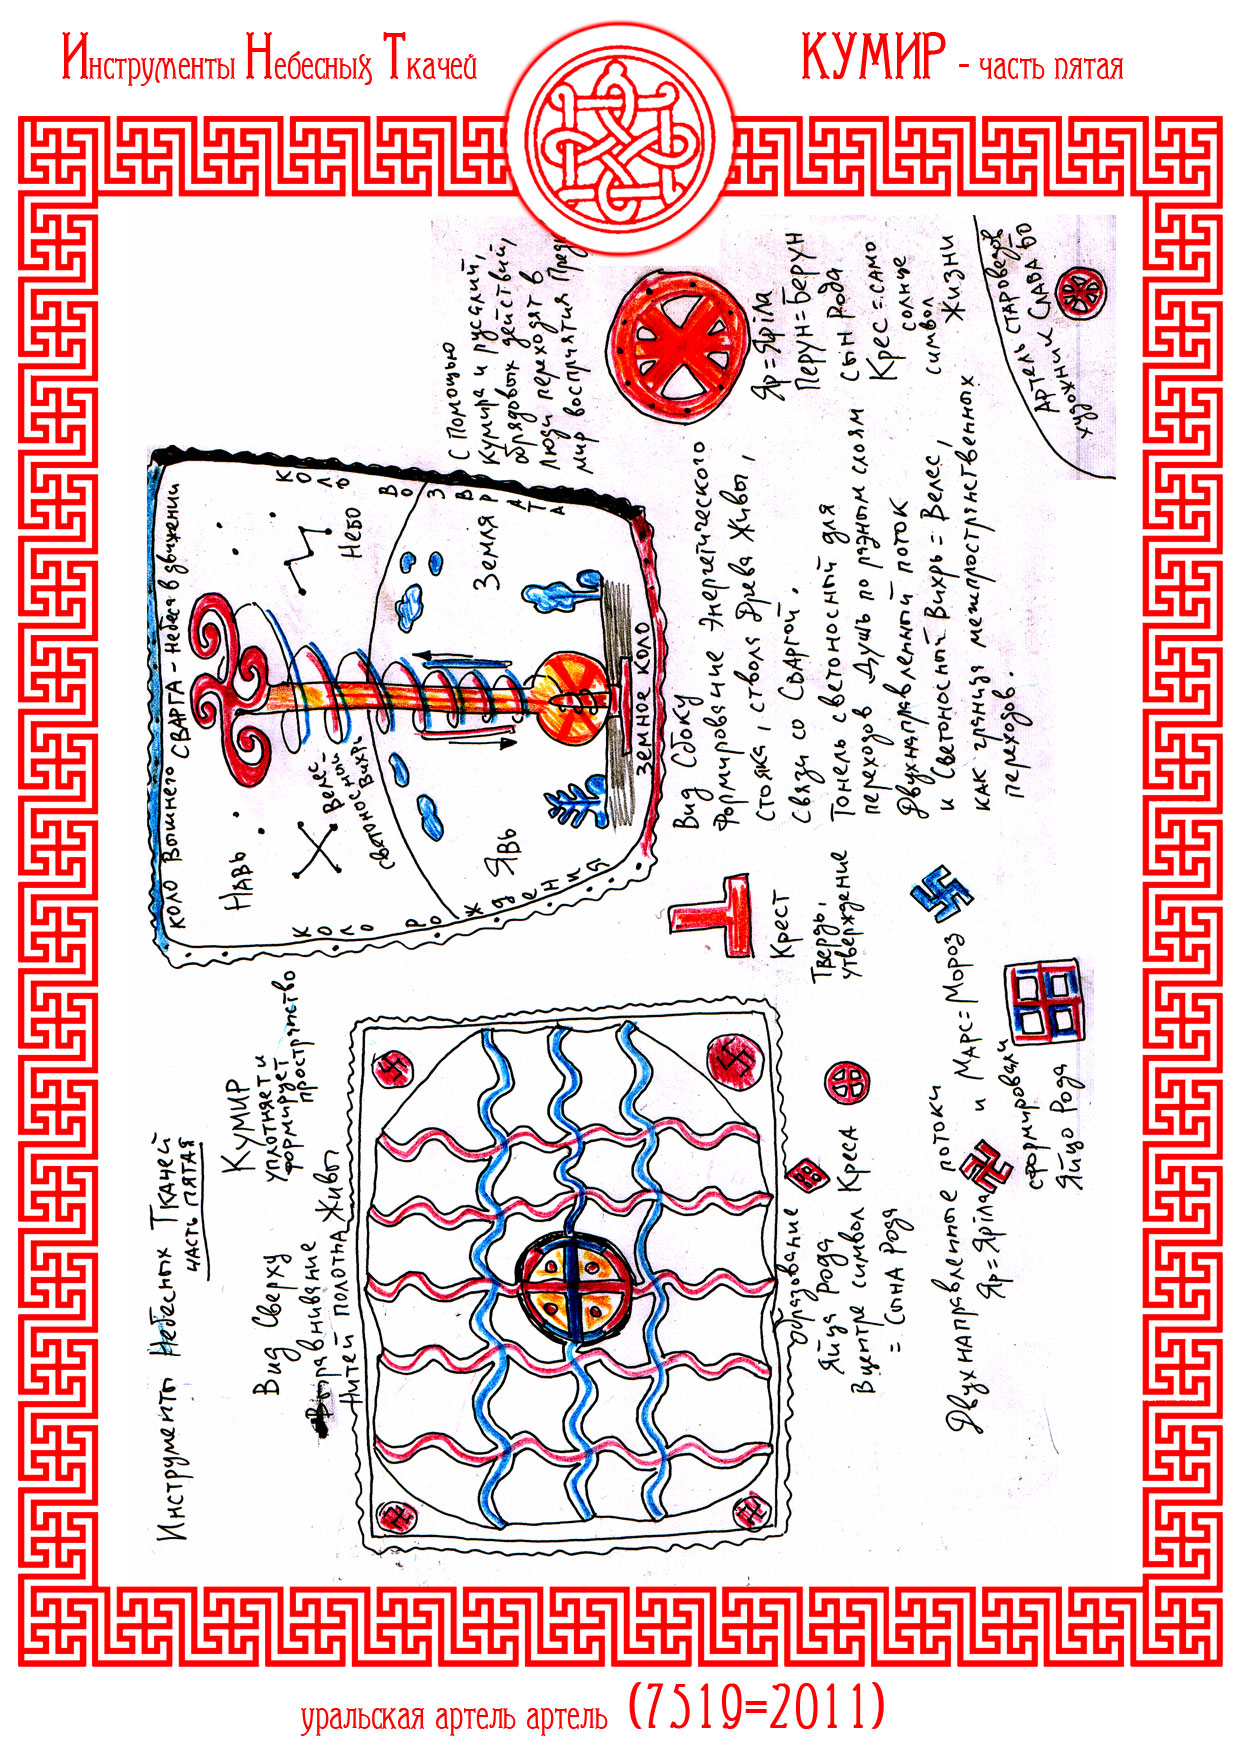 Инструменты Небесных Ткачей
КУМИР - часть пятая
Инструменты Небесных Ткачей
часть пятая
Кумир
уплотняет и
формирует
пространство
Вид Сверху
Выравнивание
Нитей полотна Живы
Коло Вышнего Сварга - Небеса в движении
Навь
Небо
Коло
Возврата
Велес -
светоносный
Вихрь
Земля
Явь
Коло
Рождения
Земное коло
С помощью
Кумира и русалий,
обрядовых действий,
люди переходят в
мир восприятия
Яр = Яріла
Перун = Берун
сын Рода
Крес = само
солнце
символ
Жизни
Вид Сбоку
Формирование Энергетического
стояка, ствола Древа Живы,
связи со Сваргой.
Тонель светоносный для
переходов Душь по разным слоям
Двухнаправленный поток
и Светоносный Вихрь = Велес,
как гряндя межпространственных
переходов.
Артель староведов
художник Слава Бо
Крест
Твердь,
утверждение
образование
Яйца Рода
Вцентре символ Креса
= Сына Рода
Двухнаправленные потоки
Яр = Яріла и Марс = Мороз
сформировали
Яйцо Рода
уральская артель артель (7519=2011)